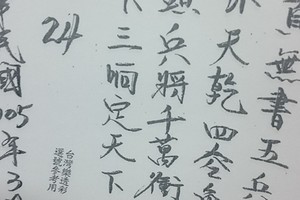 無書五兵
天乾四叁
兵將千萬衝
下三個定天下
24
台灣樂透彩
選號參考用
民國105年3